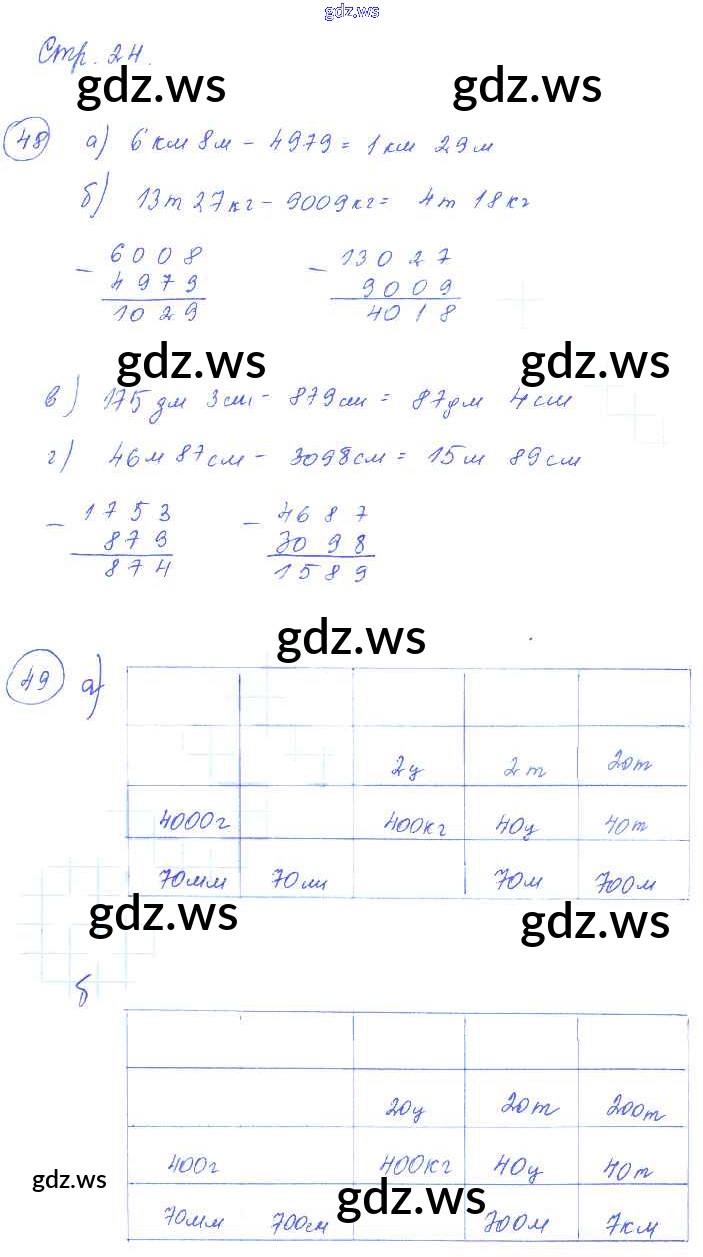 gdz.ws
Стр. 24.
gdz.ws gdz.ws
48 а) 6 км 8м - 4979 = 1 км 29 м
б) 13т 27кг - 9009кг = 4т 18кг
- 6008 - 13027
4979 9009
1029 4018
gdz.ws gdz.ws
в) 175дм 3см - 879см = 87дм 4см
г) 46м 87см - 3098см = 15м 89см
- 1753 - 4687
879 3098
874 1589
gdz.ws
49 а)
2ц 2т 20т
4000г 400кг 40ц 40т
70мм 70см 70м 700м
gdz.ws gdz.ws
б
20ц 20т 200т
400г 400кг 40ц 40т
gdz.ws gdz.ws
70мм 700см 700м 7км